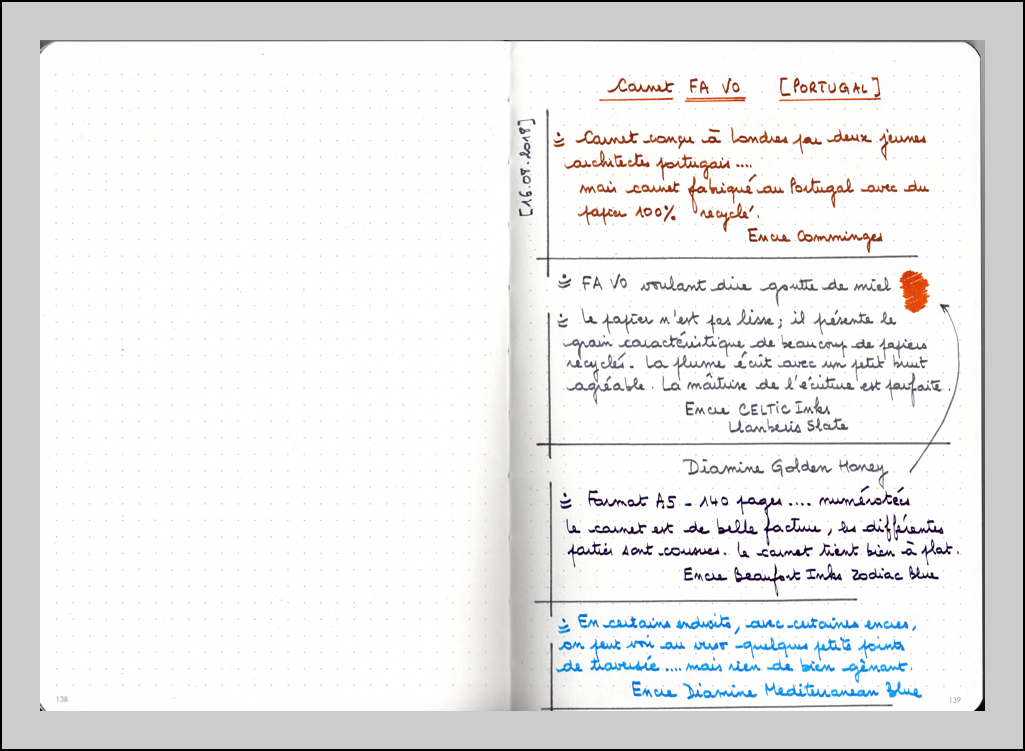 Carnet FA VO [PORTUGAL]
[16.08.2018]
Carnet conçu à Londres par deux jeunes
architectes portugais....
mais carnet fabriqué au Portugal avec du
papier 100% recyclé.
Encre Comminges
FA VO voulant dire goutte de miel
Le papier n'est pas lisse; il présente le
grain caractéristique de beaucoup de papiers
recyclés. La plume écrit avec un petit bruit
agréable. La maîtrise de l'écriture est parfaite.
Encre CELTIC Inks
Llanberis Slate
Diamine Golden Honey
Format A5 - 140 pages.... numérotées
Le carnet est de belle facture, les différentes
parties sont cousues. Le carnet tient bien à plat.
Encre Beaufort Inks Zodiac Blue
En certains endroits, avec certaines encres,
on peut voir au verso quelques petits points
de traversée.... mais rien de bien gênant.
Encre Diamine Mediterranean Blue
138
139